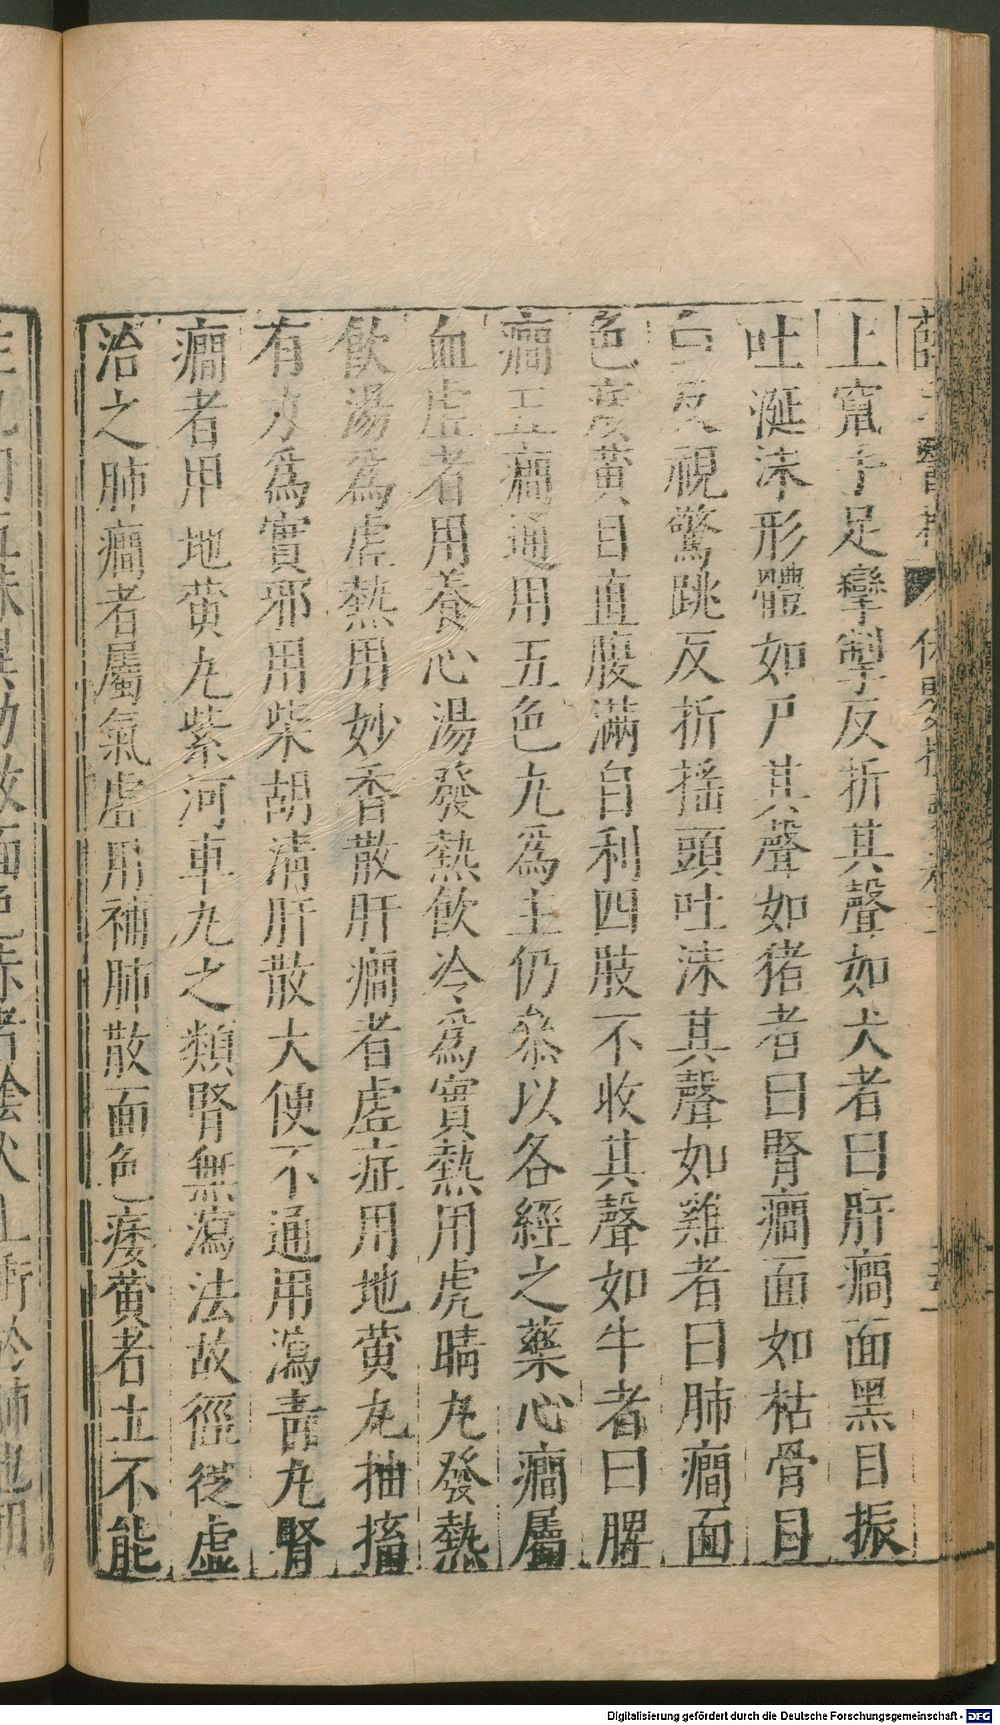 上竄手足攣掣反折其聲如犬者曰肝癇面黑目振
吐涎沫形體如尸其聲如猪者曰腎癇面如枯骨目
白反視驚跳反折搖頭吐沫其聲如雞者曰肺癇面
色痿黄目直腹滿自利四肢不收其聲如牛者曰脾
癇五癇通用五色丸爲主仍叅以各經之藥心癇屬
血虛者用養心湯發熱飲冷爲實熱用虎睛丸發熱
飲湯爲虛熱用妙香散肝癇者虛症用地黄丸抽搐
有力爲實邪用柴胡清肝散大便不通用瀉青丸腎
癇者用地黄丸紫河車丸之類腎無瀉法故徑從虛
治之肺癇者屬氣虛用補肺散面色痿黄者土不能
Digitalisierung gefördert durch die Deutsche Forschungsgemeinschaft - DFG